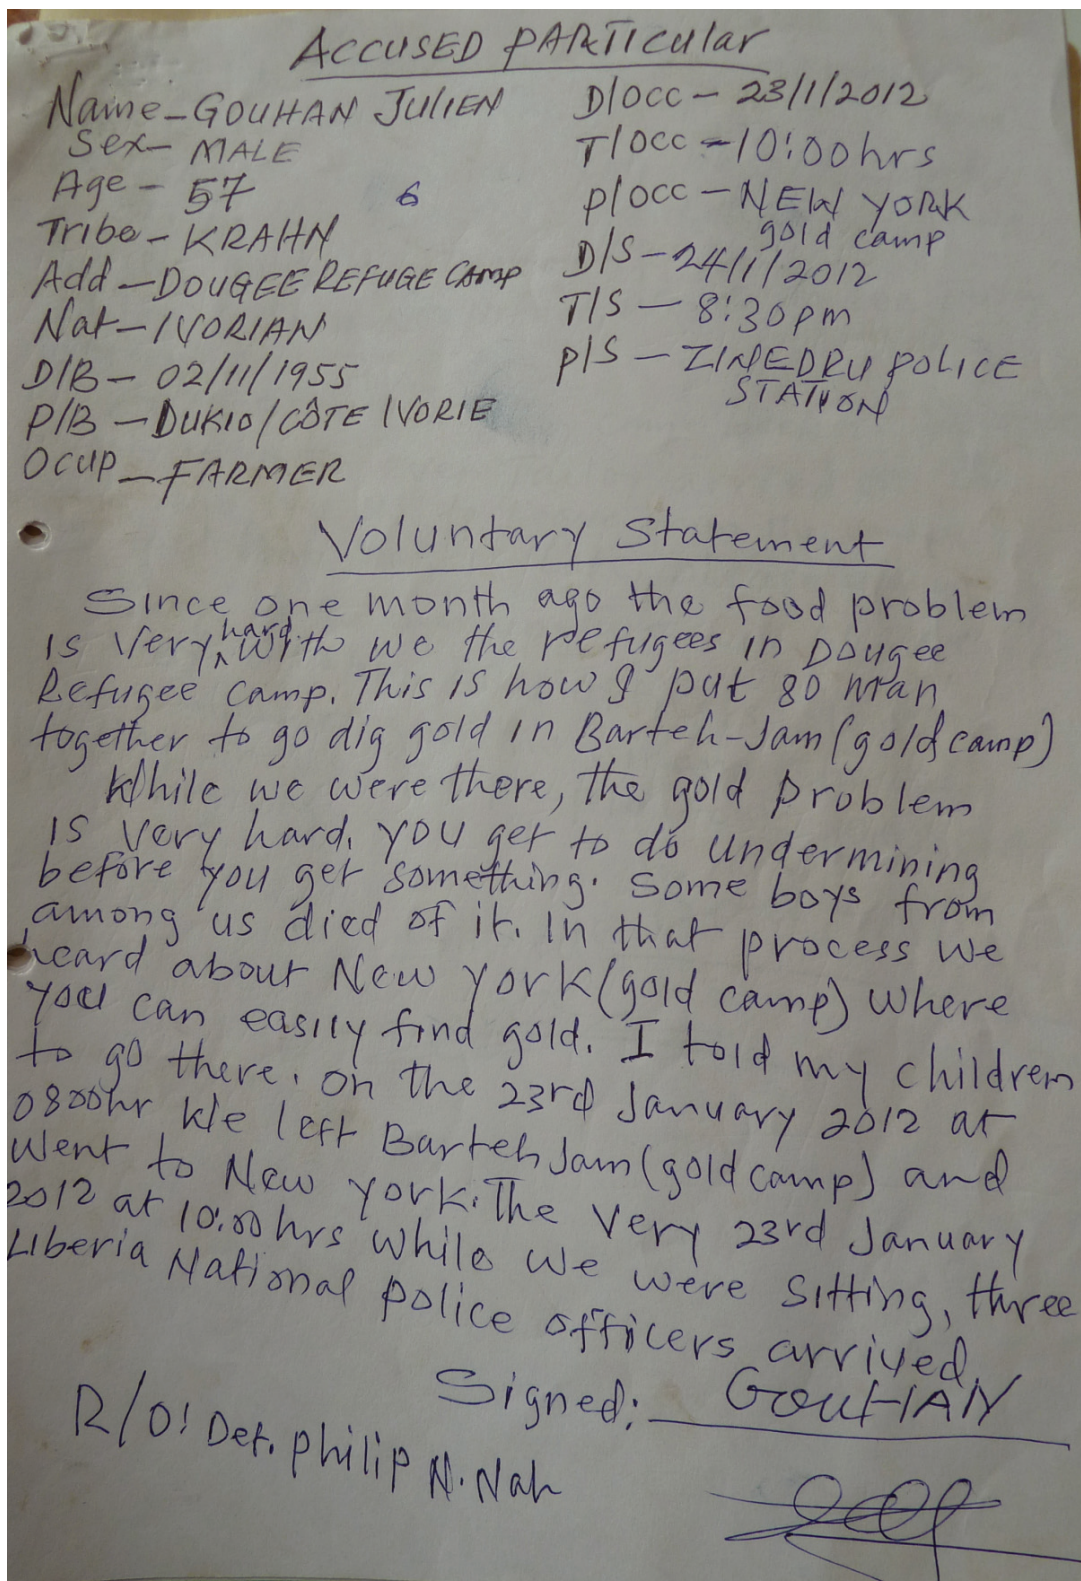 ACCUSED PARTICular
Name - GOUHAN JULIEN
Sex - MALE
Age - 57
6
Tribe - KRAHN
Add - DOUGEE REFUGE CAMP
Nat - IVORIAN
D/B - 02/11/1955
P/B - DUKIO/CÔTE IVORIE
Ocup - FARMER
D/occ - 23/1/2012
T/occ - 10:00hrs
P/occ - NEW YORK
gold camp
D/S - 24/1/2012
T/S - 8:30pm
P/S - ZINEDRU POLICE
STATION
Voluntary Statement
Since one month ago the food problem
is very hard with we the refugees in Dougee
Refugee camp. This is how I put 80 man
together to go dig gold in Barteh-Jam (gold camp)
While we were there, the gold problem
is very hard. you get to do undermining
before you get something. Some boys from
among us died of it. In that process we
heard about New York (gold camp) where
you can easily find gold. I told my children
to go there. On the 23rd January 2012 at
0800hr We left Barteh Jam (gold camp) and
went to New York. The very 23rd January
2012 at 10:00hrs while we were sitting, three
Liberia National Police officers arrived
Signed: GOUHAN
R/O: Det. Philip N. Nah